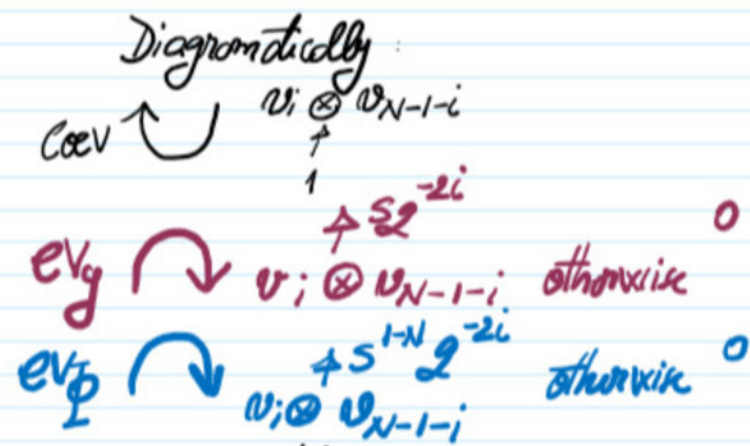 Diagramatically:
v_i ⊗ v_{N-1-i}
Coev ↑
1
s q^{-2i} 0
ev_g v_i ⊗ v_{N-1-i} otherwise
s^{1-N} q^{-2i} 0
ev_Φ v_i ⊗ v_{N-1-i} otherwise